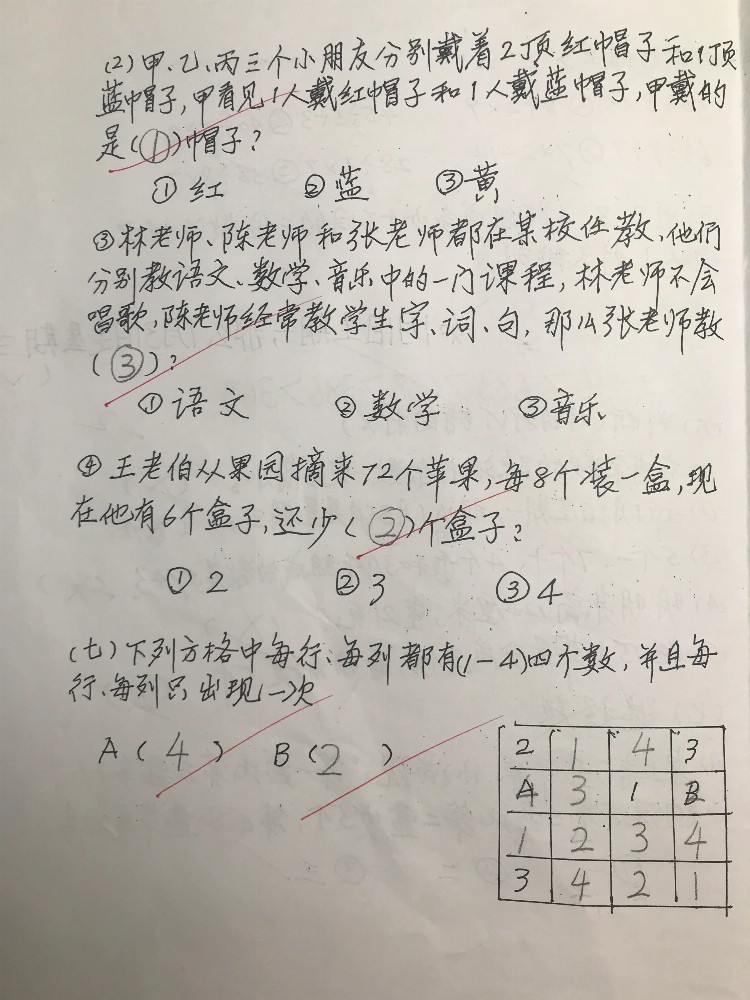 (2)甲、乙、丙三个小朋友分别戴着2顶红帽子和1顶
蓝帽子,甲看见1人戴红帽子和1人戴蓝帽子,甲戴的
是(①)帽子?
①红 ②蓝 ③黄
③林老师、陈老师和张老师都在某校任教,他们
分别教语文、数学、音乐中的一门课程,林老师不会
唱歌,陈老师经常教学生字、词、句,那么张老师教
(③)?
①语文 ②数学 ③音乐
④王老伯从果园摘来72个苹果,每8个装一盒,现
在他有6个盒子,还少(②)个盒子?
①2 ②3 ③4
(七)下列方格中每行、每列都有(1-4)四个数,并且每
行、每列只出现一次
A(4) B(2)
2 1 4 3
A 3 1 B
1 2 3 4
3 4 2 1